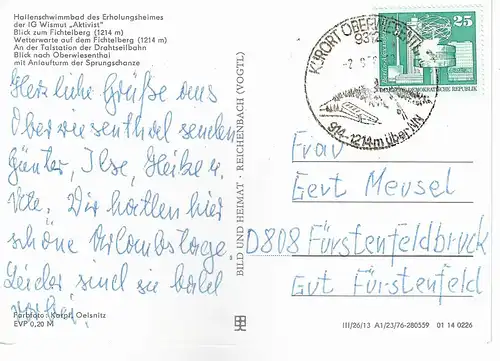 Hallenschwimmbad des Erholungsheimes
der IG Wismut „Aktivist"
Blick zum Fichtelberg (1214 m)
Wetterwarte auf dem Fichtelberg (1214 m)
An der Talstation der Drahtseilbahn
Blick nach Oberwiesenthal
mit Anlaufturm der Sprungschanze
Herzliche Grüße aus
Oberwiesenthal senden
Günter, Ilse, Heike u.
Ute. Wir hatten hier
schöne Urlaubstage.
Leider sind sie bald
vorbei.
Farbfoto: Karpf, Oelsnitz
EVP 0,20 M
BILD UND HEIMAT · REICHENBACH (VOGTL)
KURORT OBERWIESENTHAL
9312
914-1214 m über NN
25
DEUTSCHE DEMOKRATISCHE REPUBLIK
Frau
Gert Meusel
D808 Fürstenfeldbruck
Gut Fürstenfeld
III/26/13 A1/23/76-280559 01 14 0226